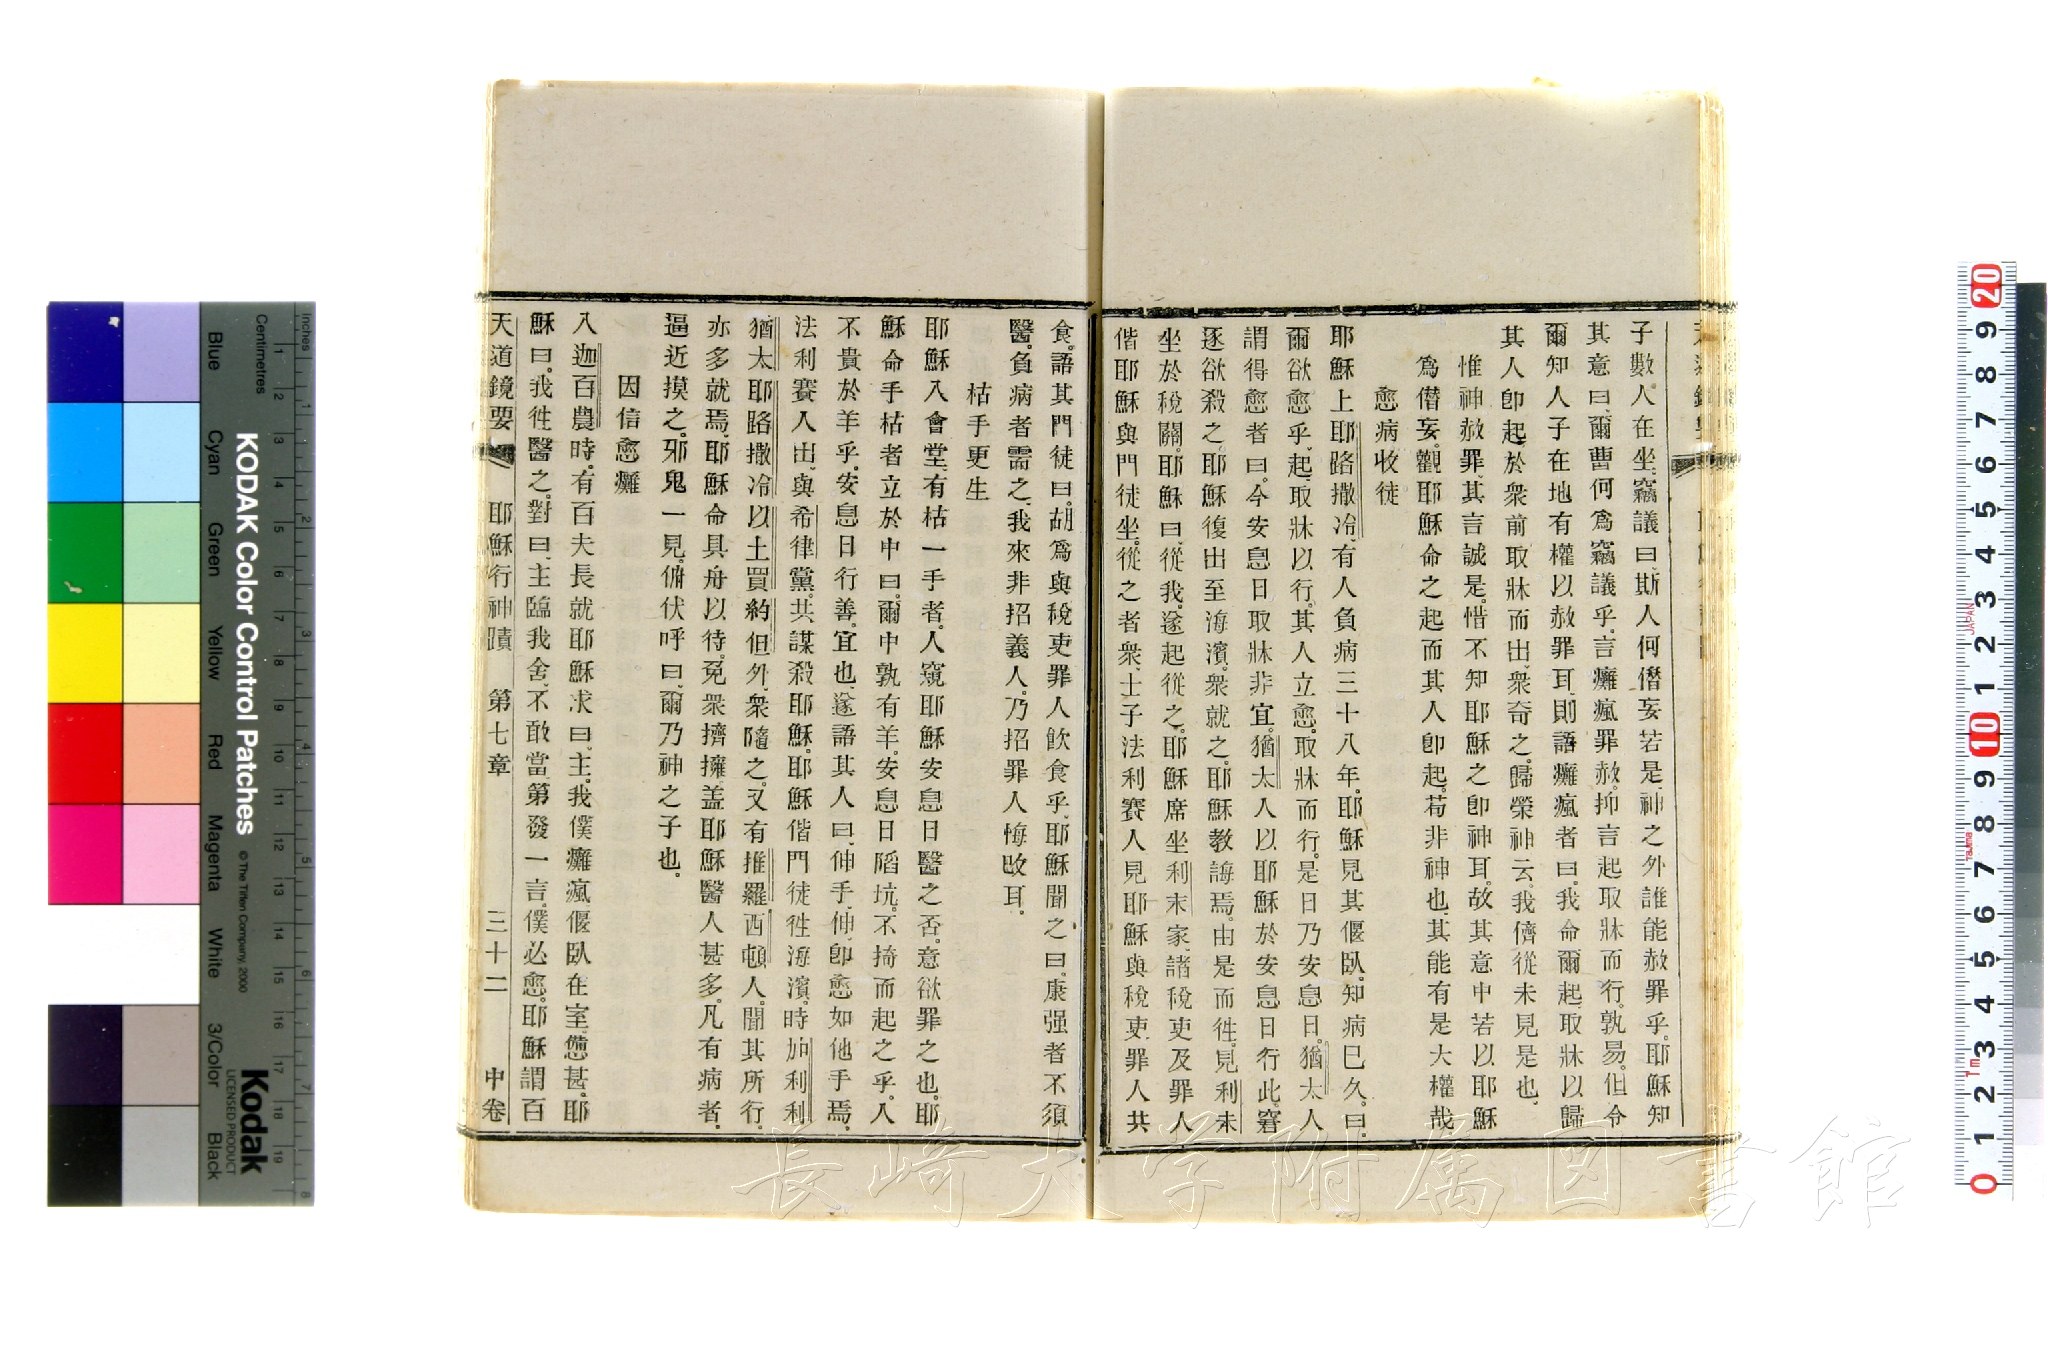 子數人在坐、竊議曰、斯人何僭妄若是、神之外誰能赦罪乎、耶穌知
其意曰、爾曹何爲竊議乎、言癱瘋罪赦、抑言起取牀而行、孰易、但令
爾知人子在地有權以赦罪耳、則語癱瘋者曰、我命爾起、取牀以歸
其人卽起、於衆前取牀而出、衆奇之、歸榮神云、我儕從未見是也、
惟神赦罪、其言誠是、惜不知耶穌之卽神耳、故其意中若以耶穌
爲僭妄、觀耶穌命之起而其人卽起、苟非神也、其能有是大權哉
愈病收徒
耶穌上耶路撒冷、有人負病三十八年、耶穌見其偃臥、知病已久、曰、
爾欲愈乎、起、取牀以行、其人立愈、取牀而行、是日乃安息日、猶太人
謂得愈者曰、今安息日取牀非宜、猶太人以耶穌於安息日行此、窘
逐欲殺之、耶穌復出至海濱、衆就之、耶穌教誨焉、由是而徃、見利未
坐於稅關、耶穌曰、從我、遂起從之、耶穌席坐利未家、諸稅吏及罪人
偕耶穌與門徒坐、從之者衆、士子法利賽人見耶穌與稅吏罪人共
食、語其門徒曰、胡爲與稅吏罪人飲食乎、耶穌聞之曰、康强者不須
醫、負病者需之、我來非招義人、乃招罪人悔改耳、
枯手更生
耶穌入會堂、有枯一手者、人窺耶穌安息日醫之否、意欲罪之也、耶
穌命手枯者立於中曰、爾中孰有羊、安息日陷坑、不掎而起之乎、人
不貴於羊乎、安息日行善、宜也、遂語其人曰、伸手、伸、卽愈如他手焉、
法利賽人出、與希律黨、共謀殺耶穌、耶穌偕門徒徃海濱、時加利利
猶太耶路撒冷以土買約但外、衆隨之、又有推羅西頓人、聞其所行、
亦多就焉、耶穌命具舟以待、免衆擠擁、蓋耶穌醫人甚多、凡有病者、
逼近摸之、邪鬼一見、俯伏呼曰、爾乃神之子也、
因信愈癱
入迦百農時、有百夫長就耶穌求曰、主、我僕癱瘋偃臥在室、憊甚、耶
穌曰、我徃醫之、對曰、主臨我舍、不敢當、第發一言、僕必愈、耶穌謂百
天道鏡要 耶穌行神蹟 第七章 三十二 中卷
KODAK Color Control Patches
© The Tiffen Company, 2000
Kodak
LICENSED PRODUCT
Inches
Centimetres
Blue Cyan Green Yellow Red Magenta White 3/Color Black
長崎大学附属図書館